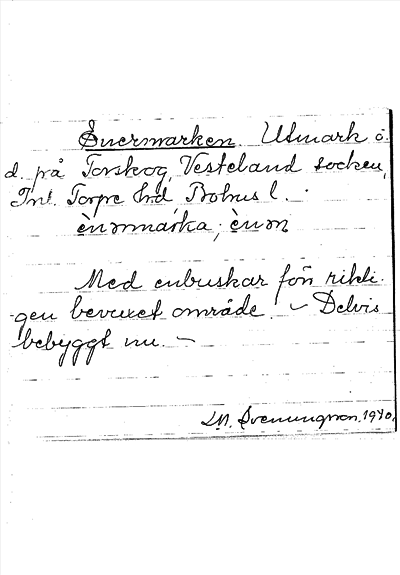 Enermarken Utmark o.
d. på Torskog, Vesteland socken,
Inl. Torpe hrd Bohus l.
ènnmarka; ènm
Med enbuskar för rikli-
gen bevuxet område. – Delvis
bebyggt nu. –
M. Svenungsson. 1940.